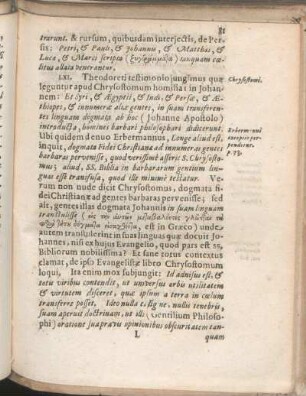 81
trarunt. & rursum, quibusdam interjectis, de Per-
sis: Petri, & Pauli, & Johannis, & Matthæi, &
Lucæ, & Marci scripta (συγγράμματα) tanquam cœ-
litus allata venerantur.
LXI. Theodoreti testimonio jungimus quæ
seqvuntur apud Chrysostomum homilia I in Johan-
nem: Et Syri, & Ægyptii, & Indi, & Persæ, & Æ-
thiopes, & innumeræ aliæ gentes, in suam transferen-
tes linguam dogmata ab hoc (Johanne Apostolo)
introducta, homines barbari philosophari didicerunt.
Ubi quidem denuo Erbermannus, Longe aliud est,
inquit, dogmata Fidei Christianæ ad innumeras gentes
barbaras pervenisse, quod verissimè asserit S. Chryso-
stomus; aliud, SS. Biblia in barbararum gentium lin-
guas esse transfusa, quod ille minime testatur. Ve-
rum non nude dicit Chrysostomus, dogmata fi-
dei Christianæ ad gentes barbaras pervenisse; sed
ait, gentes illas dogmata Johannis in suam linguam
transtulisse
est in Græco) unde
autem transtulerint in suas linguas quæ docuit Jo-
hannes, nisi ex hujus Evangelio, quod pars est SS.
Bibliorum nobilissima? Et sane totus contextus
clamat, de ipso Evangelistæ libro Chrysostomum
loqui, Ita enim mox subjungit: Id adnisus est, &
totis viribus contendit, ut universus orbis utilitatem
& virtutem disceret, quæ ipsum a terra in cœlum
transferre posset, Idro nulla caligine, nullis tenebris,
suam aperuit doctrinam, ut illi (Gentilium Philoso-
phi) oratione suapravis opinionibus obscuritatem tan-
L quam
Chrysostomi.
p. 79.